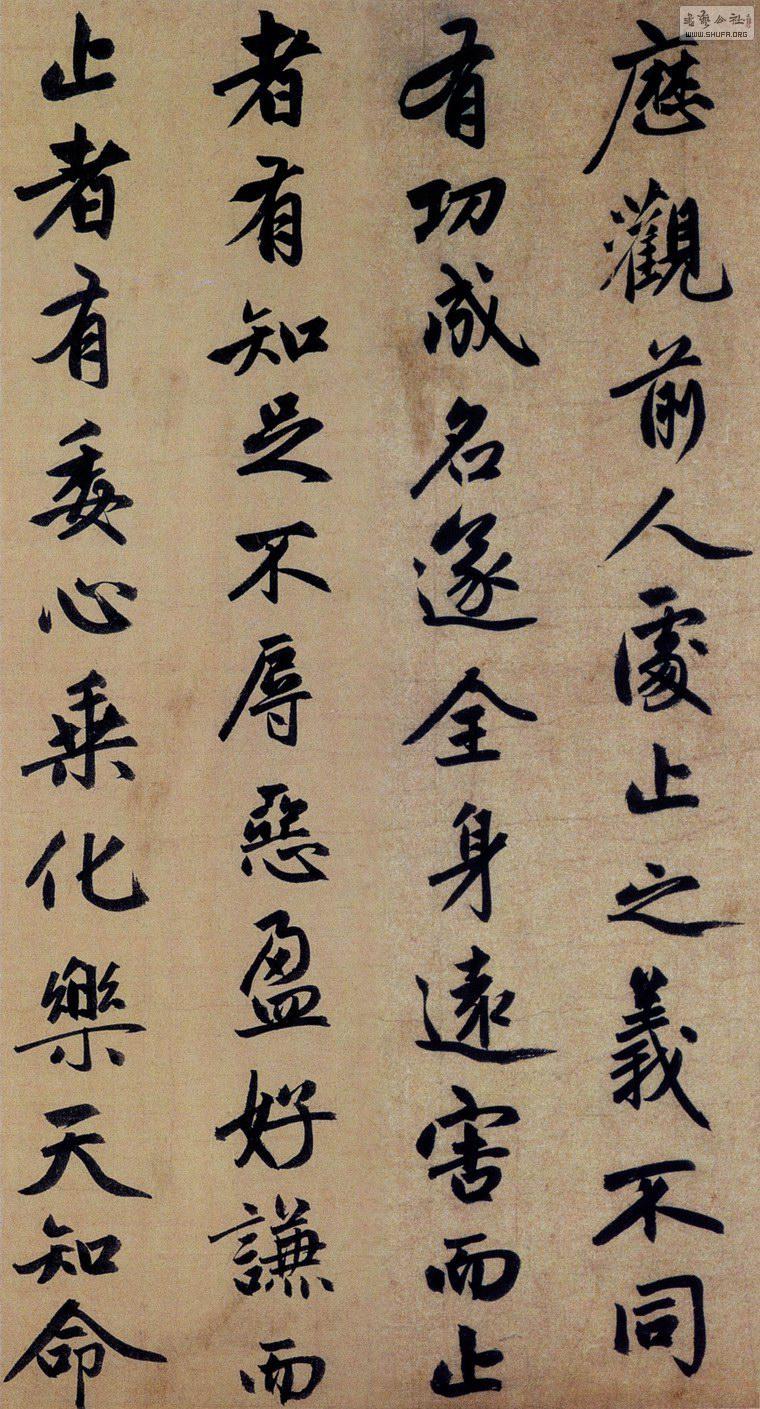 歷觀前人處止之義不同
有功成名遂全身遠害而止
者有知足不辱惡盈好謙而
止者有委心乘化樂天知命
WWW.SHUFA.ORG